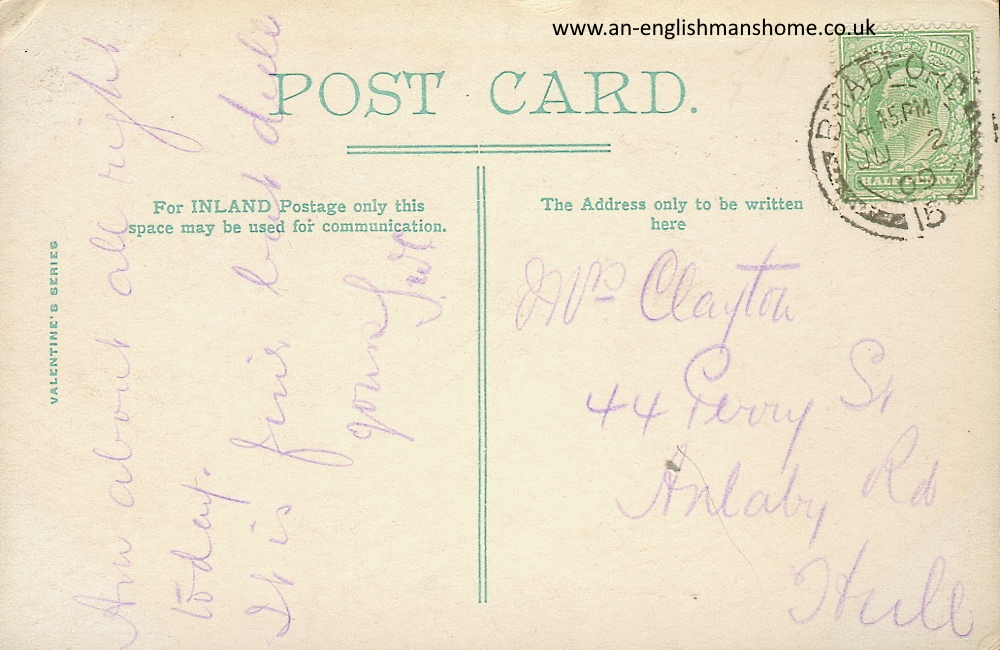 www.an-englishmanshome.co.uk
POST CARD.
BRADFORD
4 15 PM
JU 2
09
15
HALFPENNY
For INLAND Postage only this
space may be used for communication.
The Address only to be written
here
VALENTINE'S SERIES
Am about all right
today.
It is fine but dull
yours
Mrs Clayton
44 Perry St
Anlaby Rd
Hull